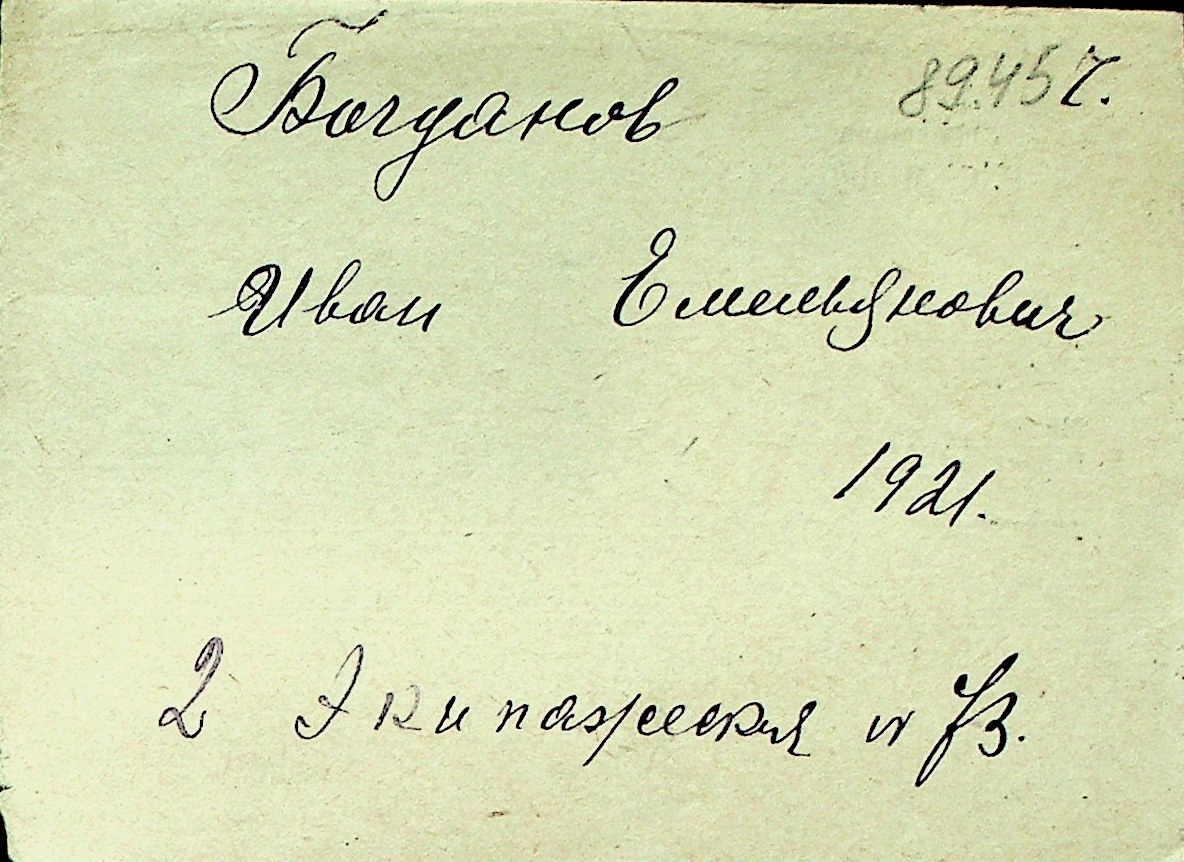 Богданов 89.457.
Иван Емельянович
1921.
2 Экипажеская